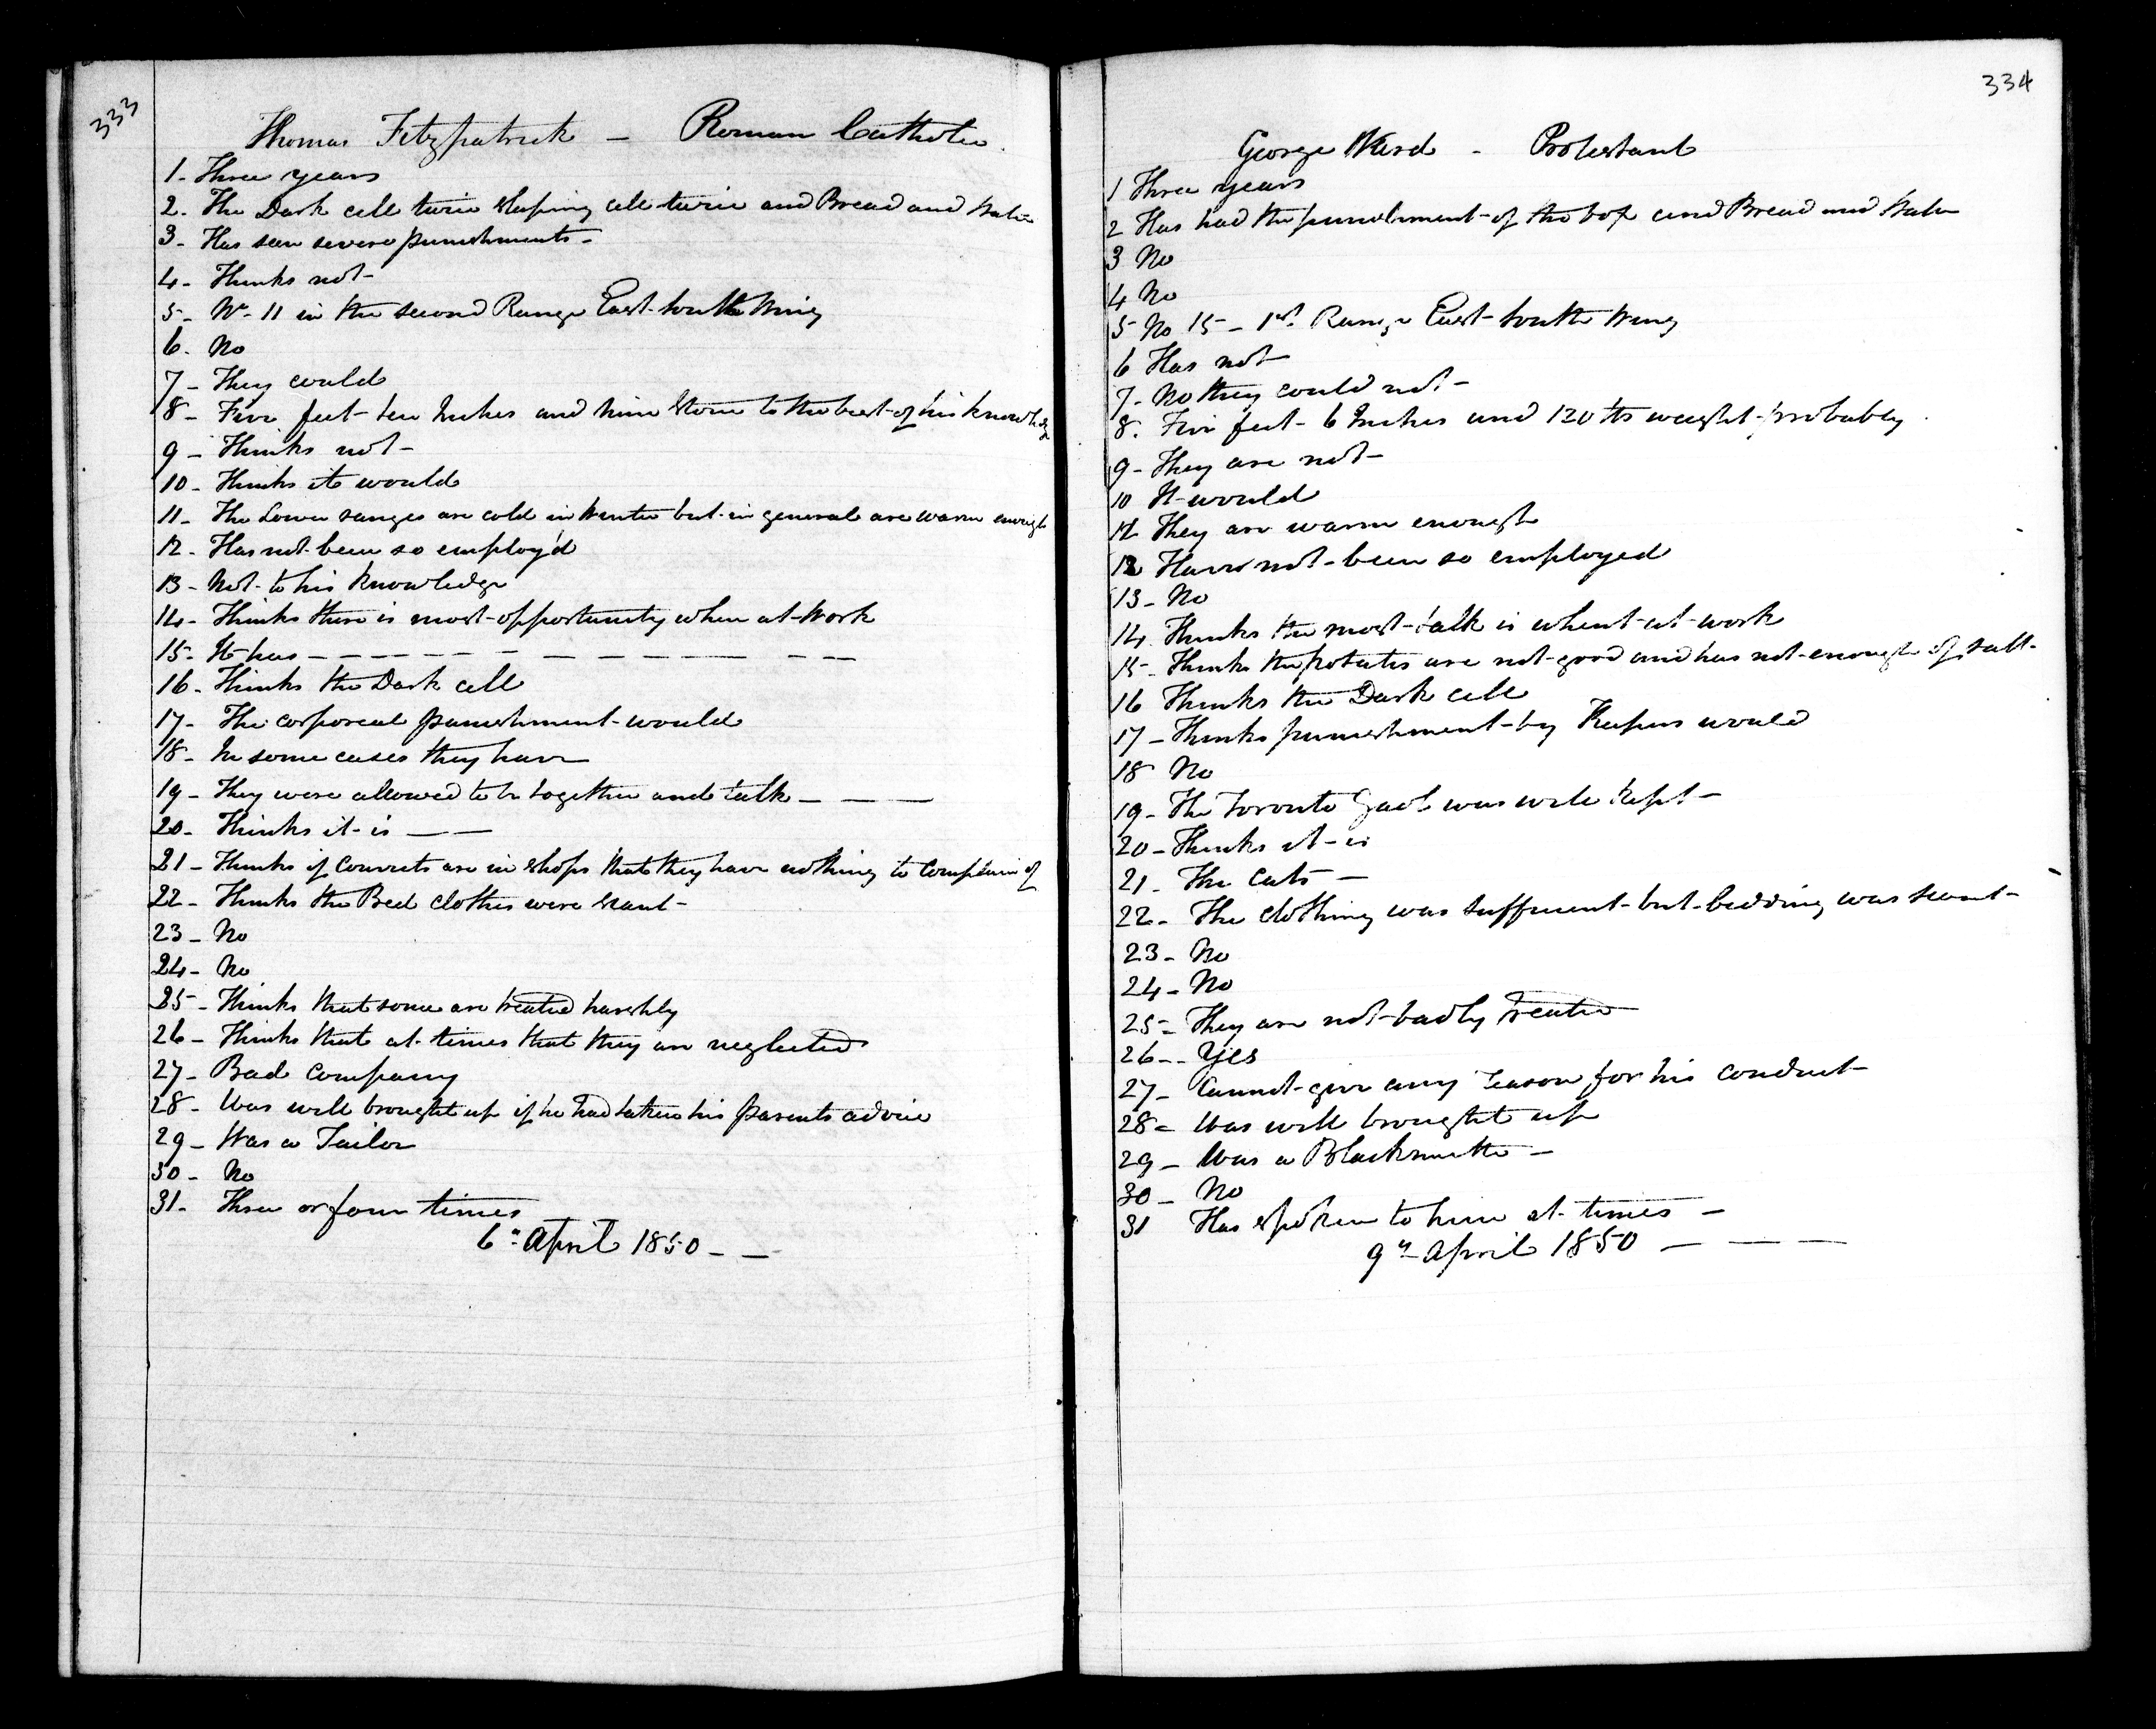 333
Thomas Fitzpatrick – Roman Catholic.
1- Three years
2. The Dark cell twice sleeping cell twice and Bread and Water
3- Has seen severe punishments-
4- Thinks not-
5- No- 11 in the second Range East South Wing
6. No
7- They could
8- Five feet ten Inches and nine Stone to the best of his knowledge
9- Thinks not-
10- Thinks it would
11- The Lower ranges are cold in Winter but in general are warm enough
12- Has not been so employ'd
13- Not to his knowledge
14- Thinks there is most opportunity when at Work
15- It has – – – – – – – – – – –
16- Thinks the Dark cell
17- The corporeal punishment would
18- In some cases they have
19- They were allowed to be together and talk – – –
20- Thinks it is – –
21- Thinks if Convicts are in Shops that they have nothing to Complain of
22- Thinks the Bed clothes were scant-
23- No
24- No
25- Thinks that some are treated harshly
26- Thinks that at times that they are neglected
27- Bad Company
28- Was well brought up if he had taken his parents advice
29- Was a Tailor
30- No
31- Three or four times
6" April 1850 – –
334
George Ward - Protestant
1 Three years
2 Has had the punishment of the box and Bread and Water
3 No
4 No
5 No 15 – 1st Range East South Wing
6 Has not
7- No they could not-
8. Five feet 6 Inches and 120 lbs weight probably
9- They are not-
10 It would
11 They are warm enough
12 Have not been so employed
13- No
14 Thinks the most talk is when at work
15- Thinks the potates are not good and has not enough of salt-
16 Thinks the Dark cell
17- Thinks punishment by Keepers would
18 No
19- The Toronto Gaol was well kept-
20- Thinks it is
21- The Cats –
22- The Clothing was sufficient but bedding was scant-
23- No
24- No
25- They are not badly treated
26-- Yes
27- Cannot give any reason for his conduct
28- Was well brought up
29- Was a Blacksmith –
30- No
31 Has spoken to him at times –
9th April 1850 – – –